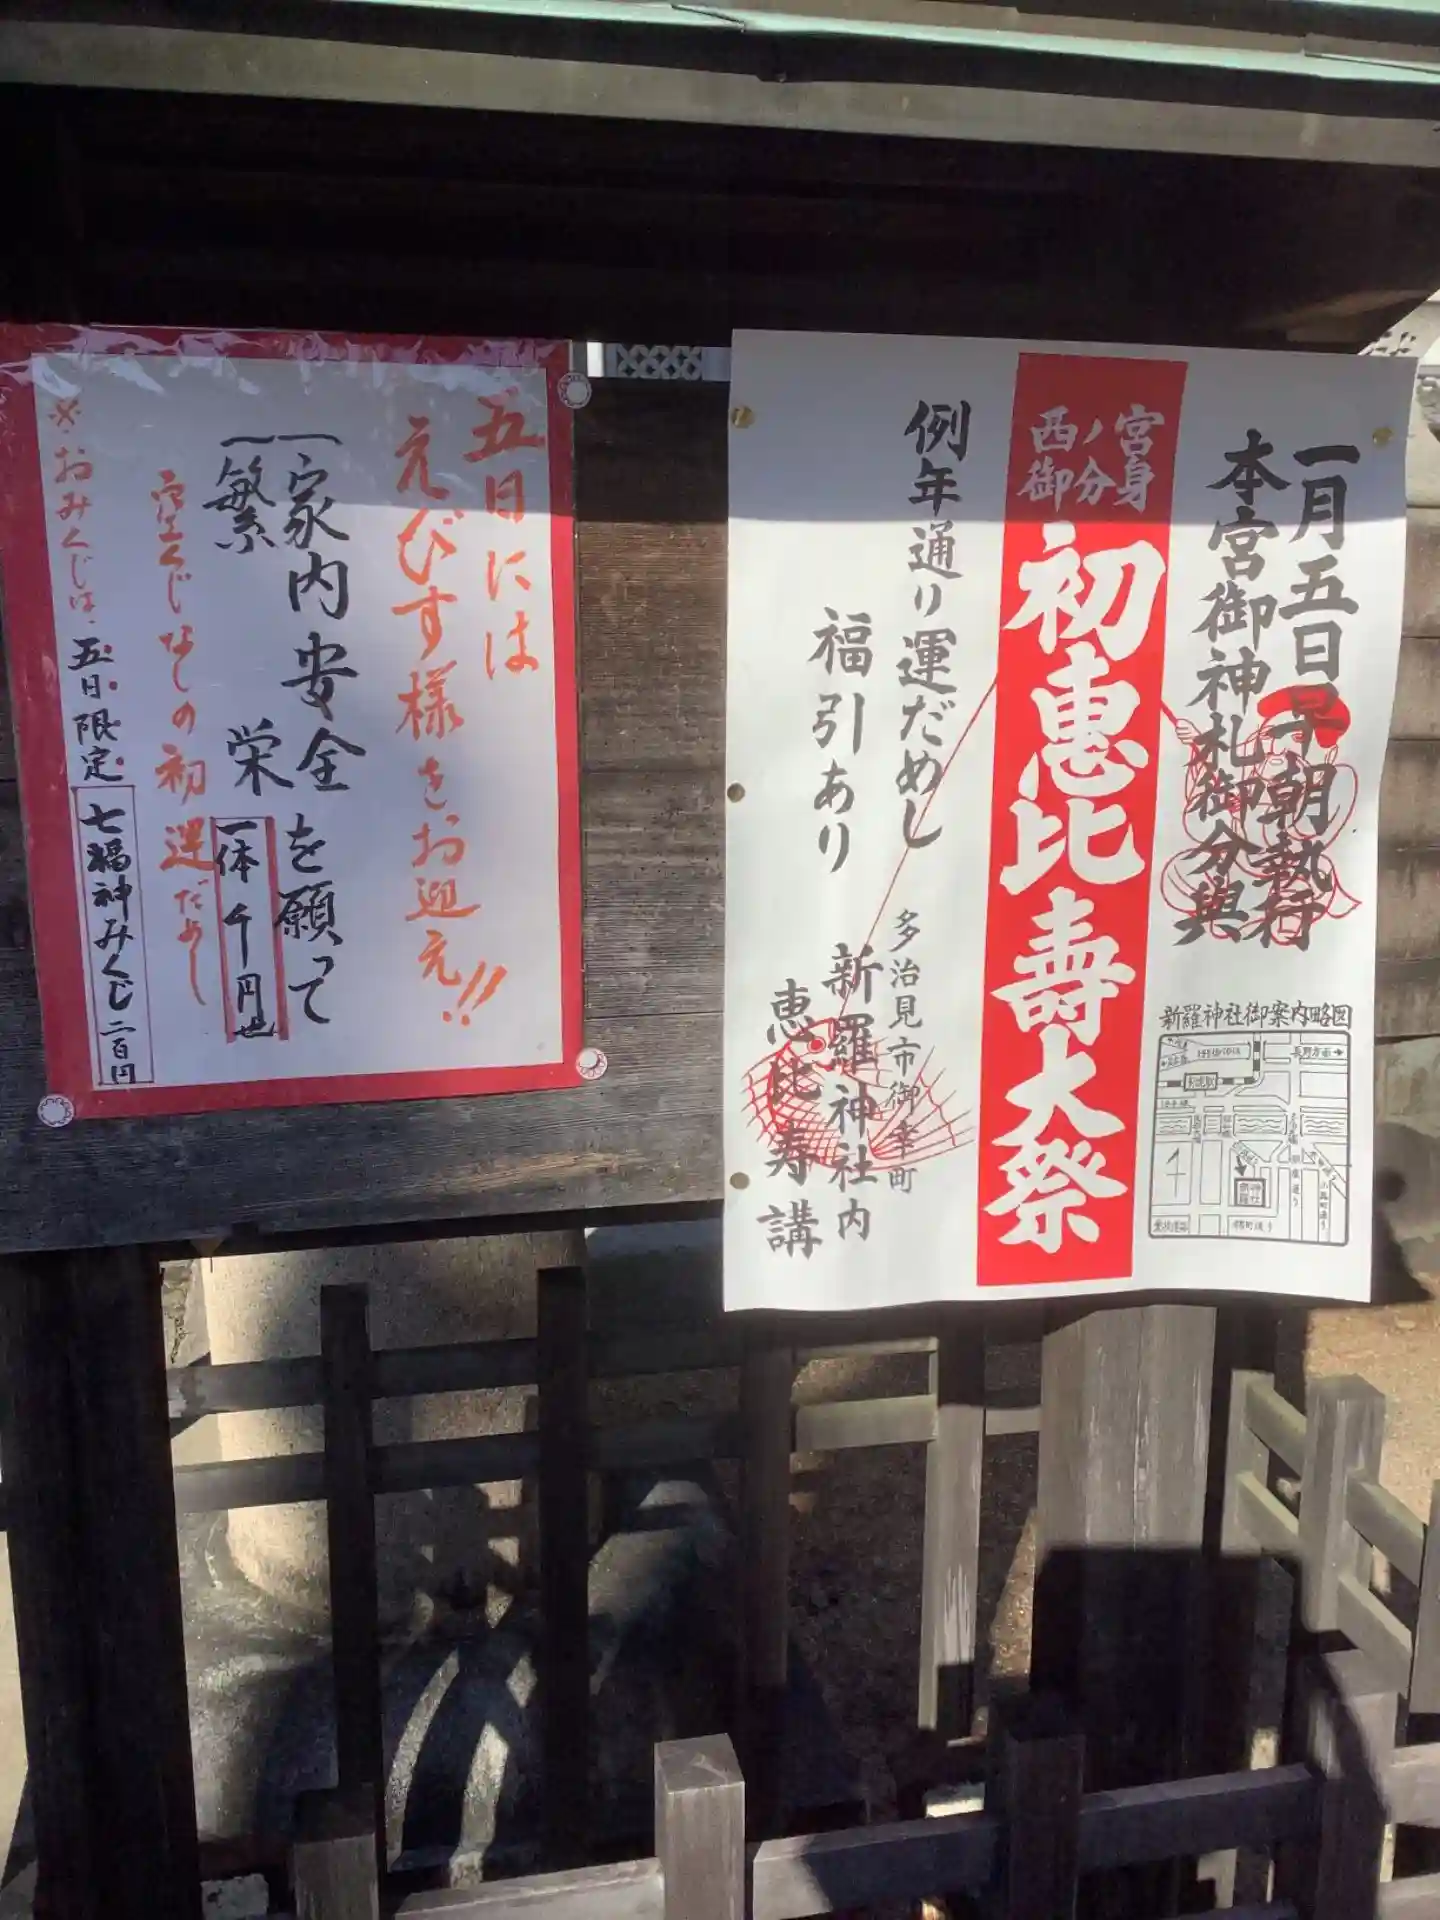 五日には
えびす様をお迎え!!
一家内安全を願って
一繁栄
一体千円也
空くじなしの初運だめし
※おみくじは、五日限定
七福神みくじ二百円
一月五日早朝執行
本宮御神札御分與
西ノ宮
御分身
初恵比壽大祭
例年通り運だめし
福引あり
多治見市御幸町
新羅神社内
恵比寿講
新羅神社御案内略図
長野方面